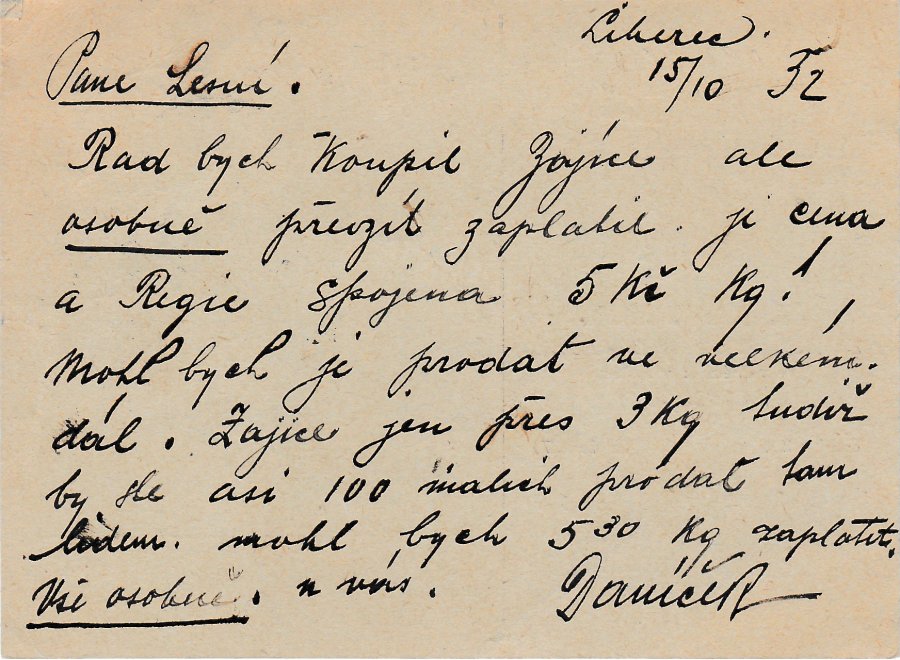 Liberec.
15/10 32
Pane Lesní.
Rad bych Koupil Zajíce ale
osobně převzít zaplatil. ji cena
a Regie Spojena 5 Kč Kg!
Mohl bych je prodat ve velkém.
dál. Zajíce jen přes 3 Kg tudíž
by ste asi 100 malich prodat tam
lidem. mohl bych 5 30 Kg zaplatit.
Vše osobně. u vás.
Daníček